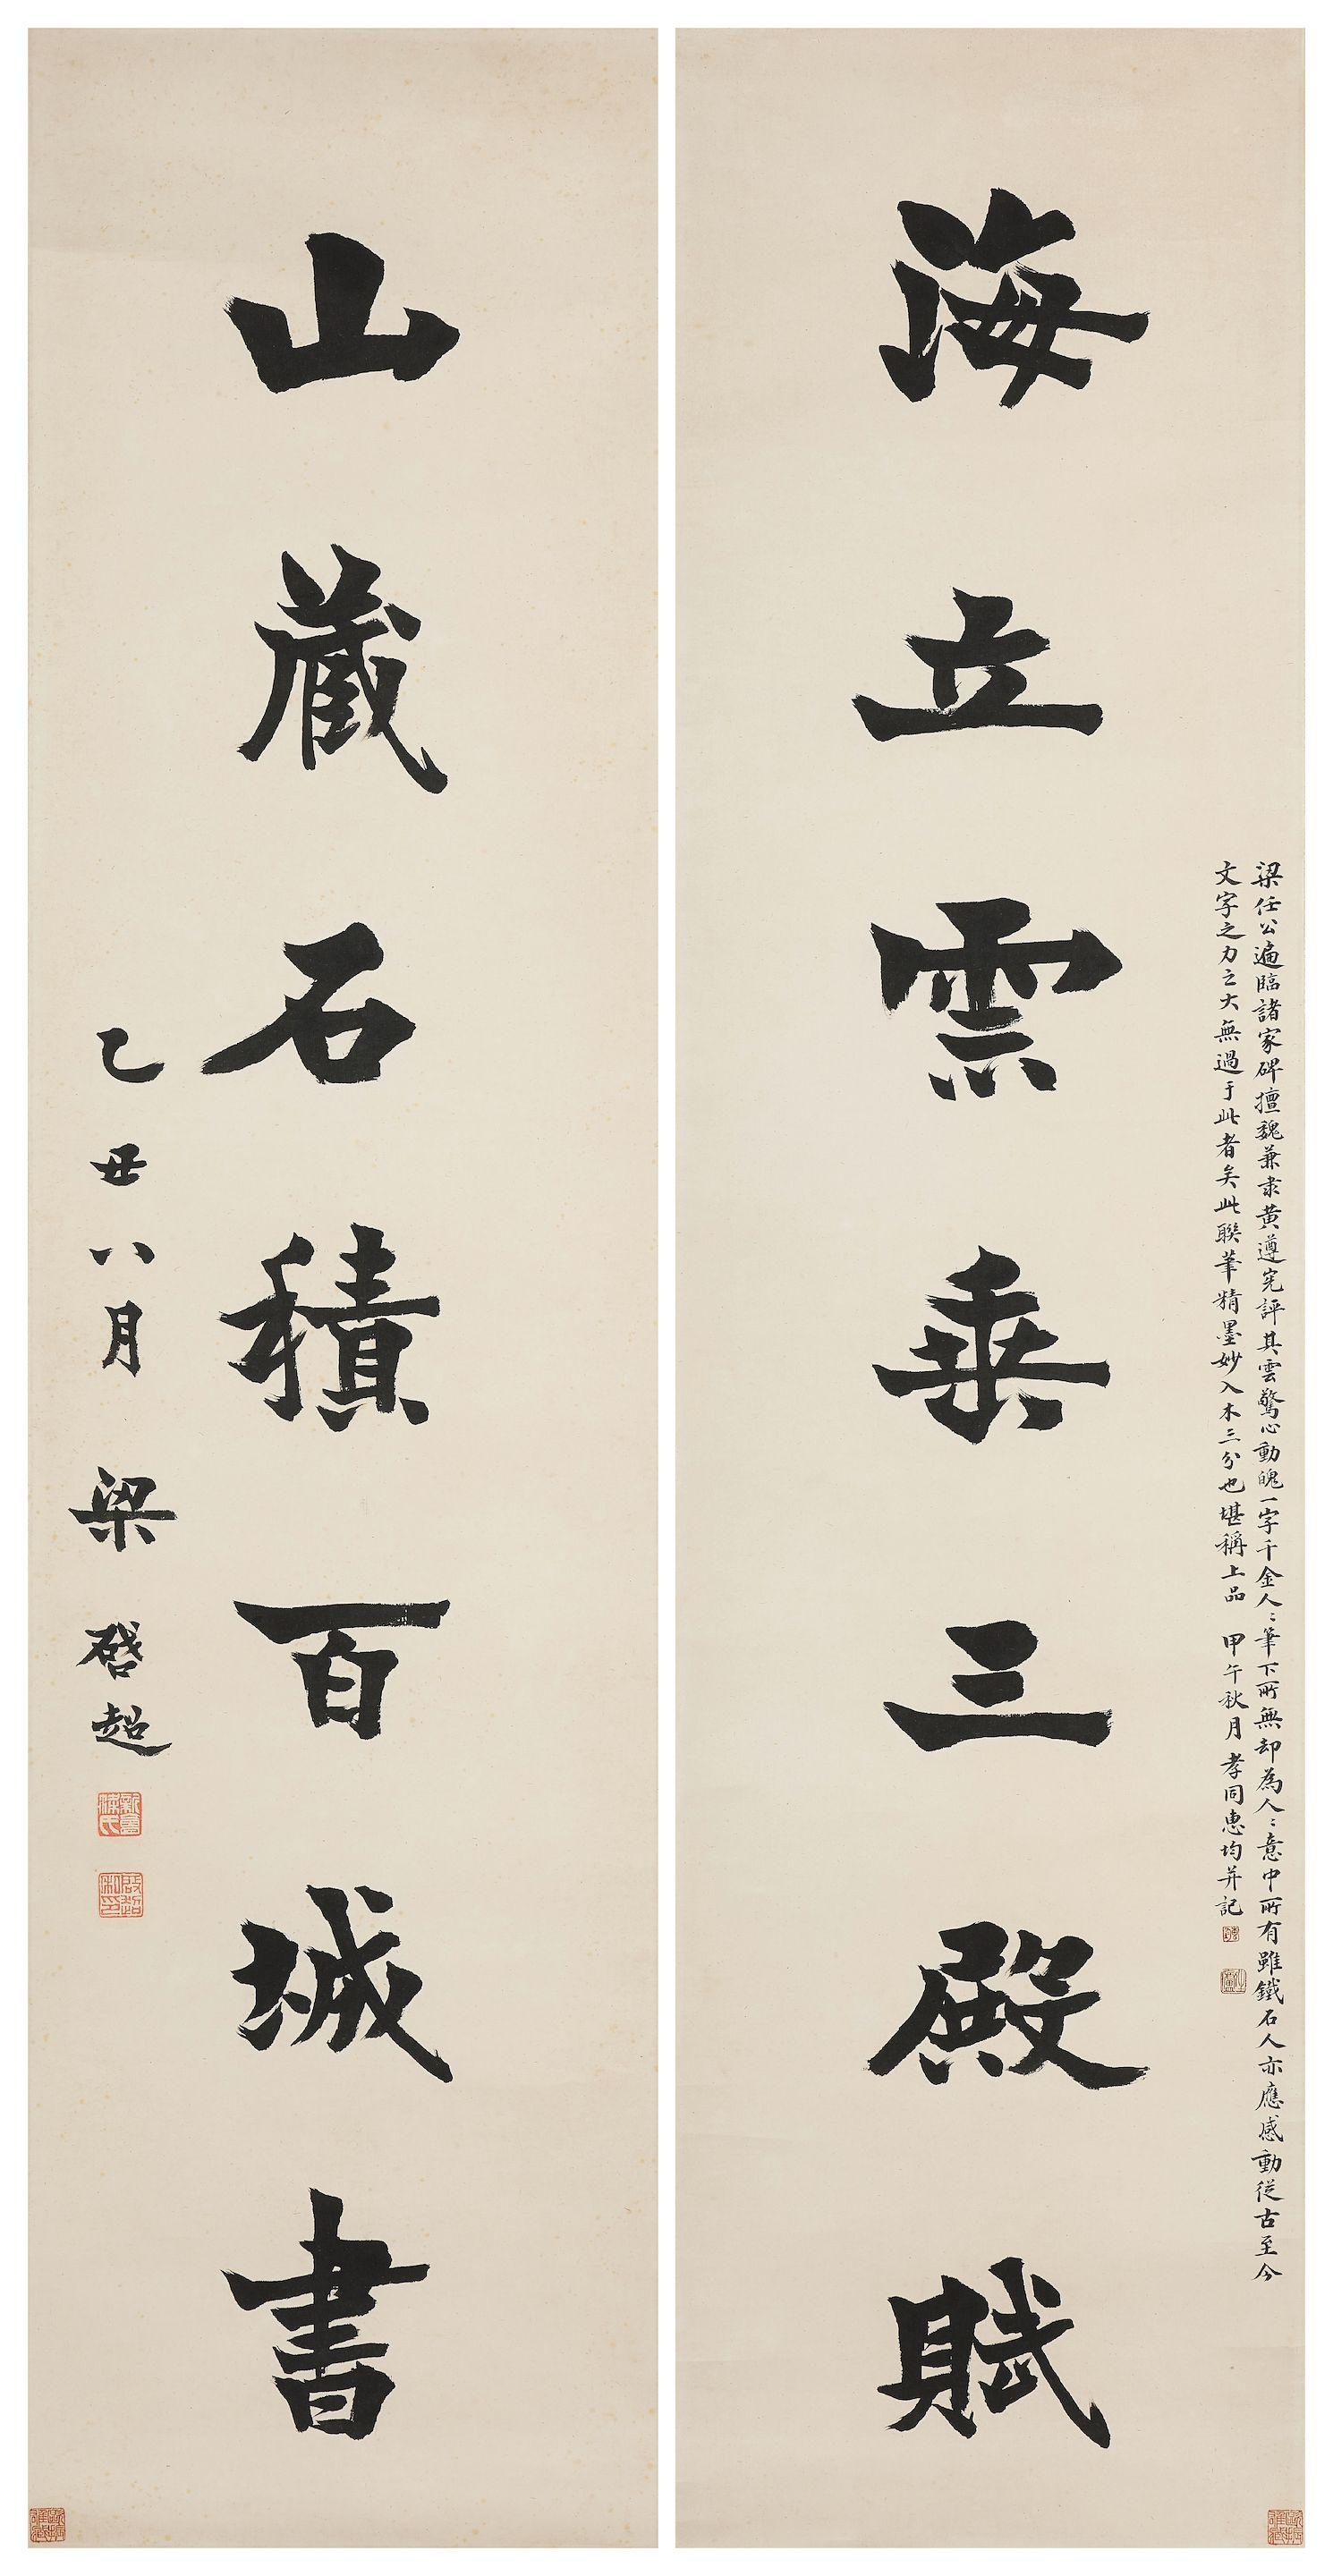 梁任公遍臨諸家碑擅魏兼隶黄遵宪評其雲驚心動魄一字千金人〻筆下所無却為人〻意中所有雖鐵石人亦應感動從古至今
文字之力之大無過于此者矣此聯筆精墨妙入木三分也堪稱上品 甲午秋月孝同惠均并記
海立雲垂三殿賦
山藏石積百城書
乙丑八月 梁啓超
新會梁氏
啟超私印